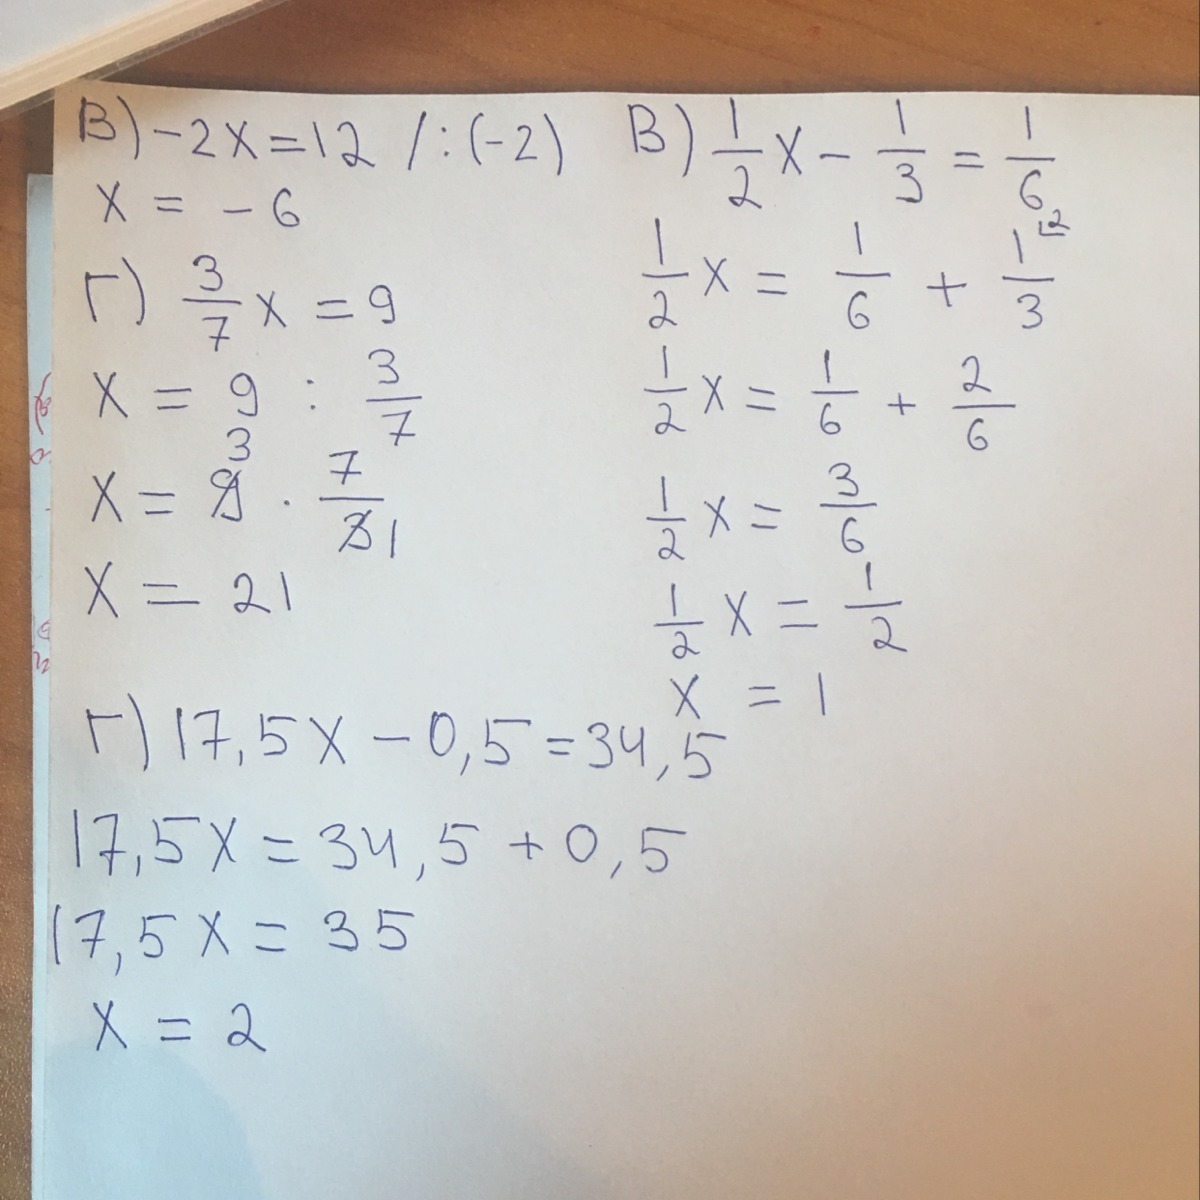 В) -2x = 12 /:(-2)
x = -6
Г) 3/7 x = 9
x = 9 : 3/7
3
x = 9 · 7/3 1
x = 21
В) 1/2 x - 1/3 = 1/6
1/2 x = 1/6 + 1/3 2
1/2 x = 1/6 + 2/6
1/2 x = 3/6
1/2 x = 1/2
x = 1
Г) 17,5x - 0,5 = 34,5
17,5x = 34,5 + 0,5
17,5x = 35
x = 2